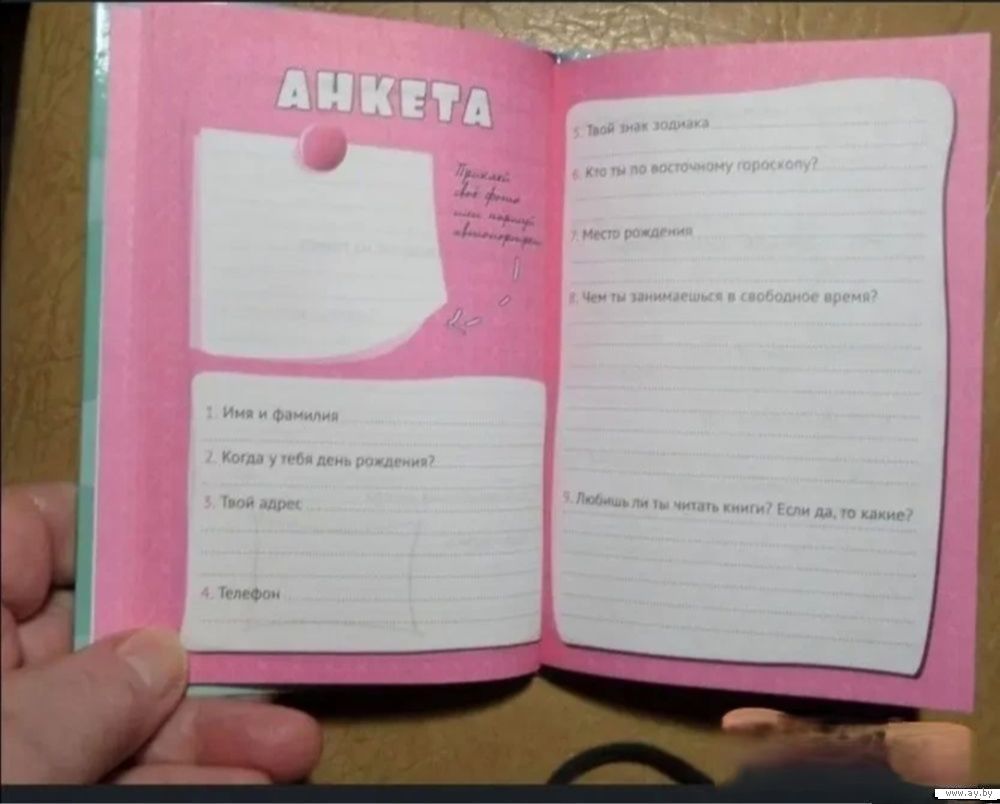 АНКЕТА
Приклей
своё фото
или нарисуй
автопортрет
1. Имя и фамилия
2. Когда у тебя день рождения?
3. Твой адрес
4. Телефон
5. Твой знак зодиака
6. Кто ты по восточному гороскопу?
7. Место рождения
8. Чем ты занимаешься в свободное время?
9. Любишь ли ты читать книги? Если да, то какие?
www.ay.by